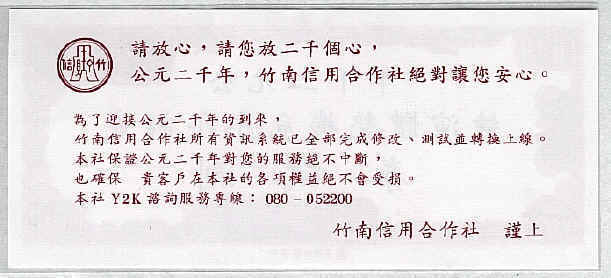 請放心，請您放二千個心，
公元二千年，竹南信用合作社絕對讓您安心。
為了迎接公元二千年的到來，
竹南信用合作社所有資訊系統已全部完成修改、測試並轉換上線。
本社保證公元二千年對您的服務絕不中斷，
也確保　貴客戶在本社的各項權益絕不會受損。
本社 Y2K 諮詢服務專線： 080 - 052200
竹南信用合作社　謹上